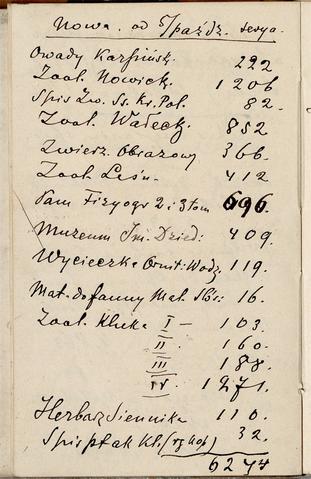 Nowa. od 5/paźdz. serya.
Owady Karpińsk. 222
Zool. Nowick. 1206
Spis Zw. Ss. Kr. Pol. 82.
Zool. Wałeck. 852
Zwierz. Obrazowy 366.
Zool. Leśn. 412
Pam Fizyogr 2 i 3 tom 696.
Muzeum Im. Dzied: 409.
Wycieczka Ornit: Wodz. 119.
Mat. do fauny Mat. 16.
Zool. Kluka I — 103.
II. 160.
III 188.
IV. 1271.
Herbarz Siennika 110.
Spis ptak Kl. 32.
6244